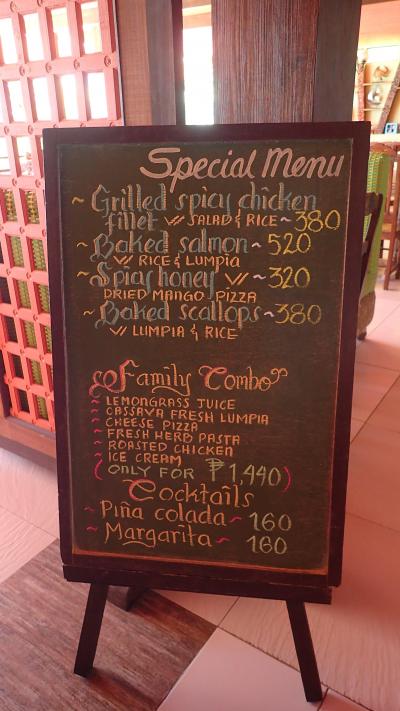 Special Menu
~ Grilled spicy chicken
fillet w/ SALAD & RICE ~ 380
~ Baked salmon ~ 520
w/ RICE & LUMPIA
~ Spicy honey w/ ~ 320
DRIED MANGO PIZZA
~ Baked scallops ~ 380
w/ LUMPIA & RICE
Family Combo
~ LEMONGRASS JUICE
~ CASSAVA FRESH LUMPIA
~ CHEESE PIZZA
~ FRESH HERB PASTA
~ ROASTED CHICKEN
~ ICE CREAM
(ONLY FOR ₱1,440)
Cocktails
~ Piña colada ~ 160
~ Margarita ~ 160